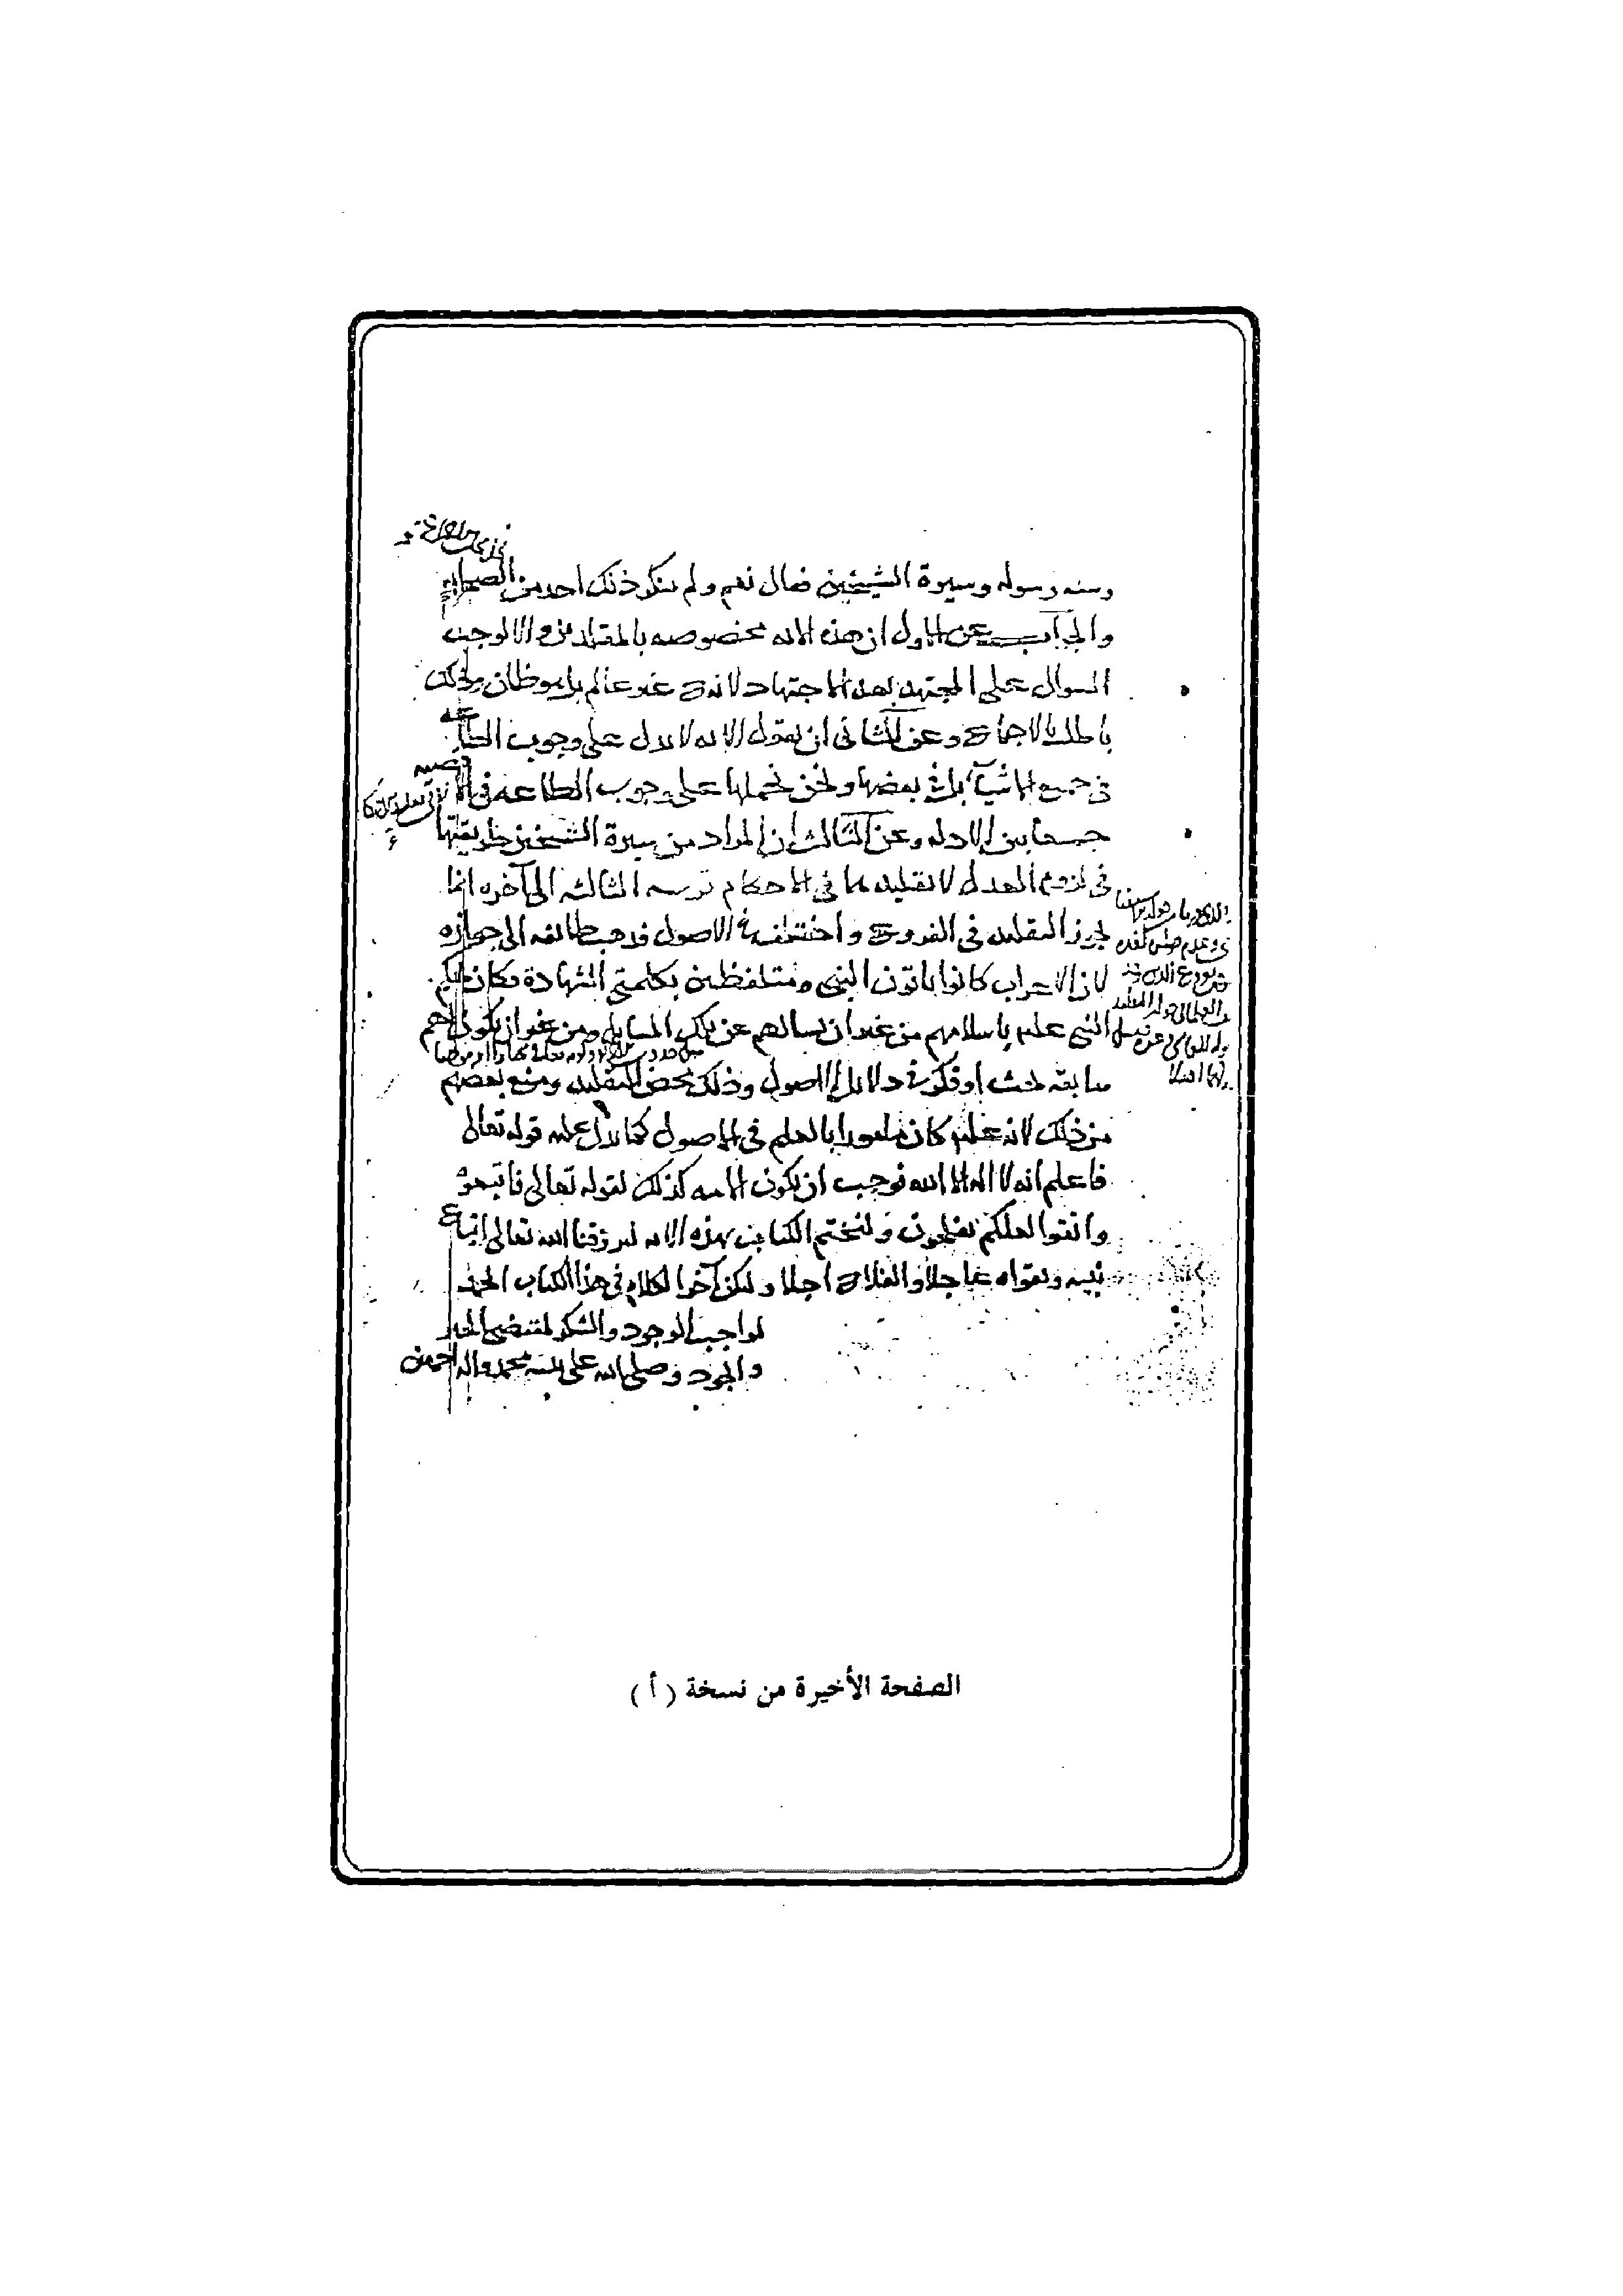 وسنه رسوله وسيرة الشيخين فقال نعم ولم ينكر ذلك احد من الصحابه
والجواب عن الاول ان هذه الايه مخصوصه بالمقلدين والا لوجب
السوال على المجتهد بعد الاجتهاد لانه غير عالم بل هو ظان وذلك
باطل بالاجماع وعن الثانى ان نقول الايه لا تدل على وجوب الطاعه
فى جميع الاشيآء بل فى بعضها ونحن نحملها على وجوب الطاعه فى الاقضيه
جمعا بين الادله وعن الثالث ان المراد من سيرة الشيخين طريقتهما
فى لزوم العدل لا تقليدهما فى الاحكام الثالثه الى آخره انما
يجوز التقليد فى الفروع واختلف فى الاصول فذهب طائفه الى جوازه
لان الاعراب كانوا ياتون النبى ومتلفظين بكلمتى الشهادة وكان يحكم
النبى عليه باسلامهم من غير ان يسالهم عن تلك المسايل ومن غير ان يكون لهم
سابقه بحث او فكر فى دلائل الاصول وذلك محض التقليد ومنع بعضهم
من ذلك لانه عليه كان مامورا بالعلم فى الاصول كما يدل عليه قوله تعالى
فاعلم انه لا اله الا الله فوجب ان يكون الامه كذلك لقوله تعالى فاتبعوه
واتقوا لعلكم تفلحون ولنختم الكتاب بهذه الايه ليرزقنا الله تعالى اتباع
نبيه وتقواه عاجلا والفلاح اجلا وليكن آخر الكلام فى هذا الكتاب الحمد
لواجب الوجود والشكر لمفيض الخير
والجود وصلى الله على نبيه محمد واله اجمعين
الصفحة الأخيرة من نسخة (أ)